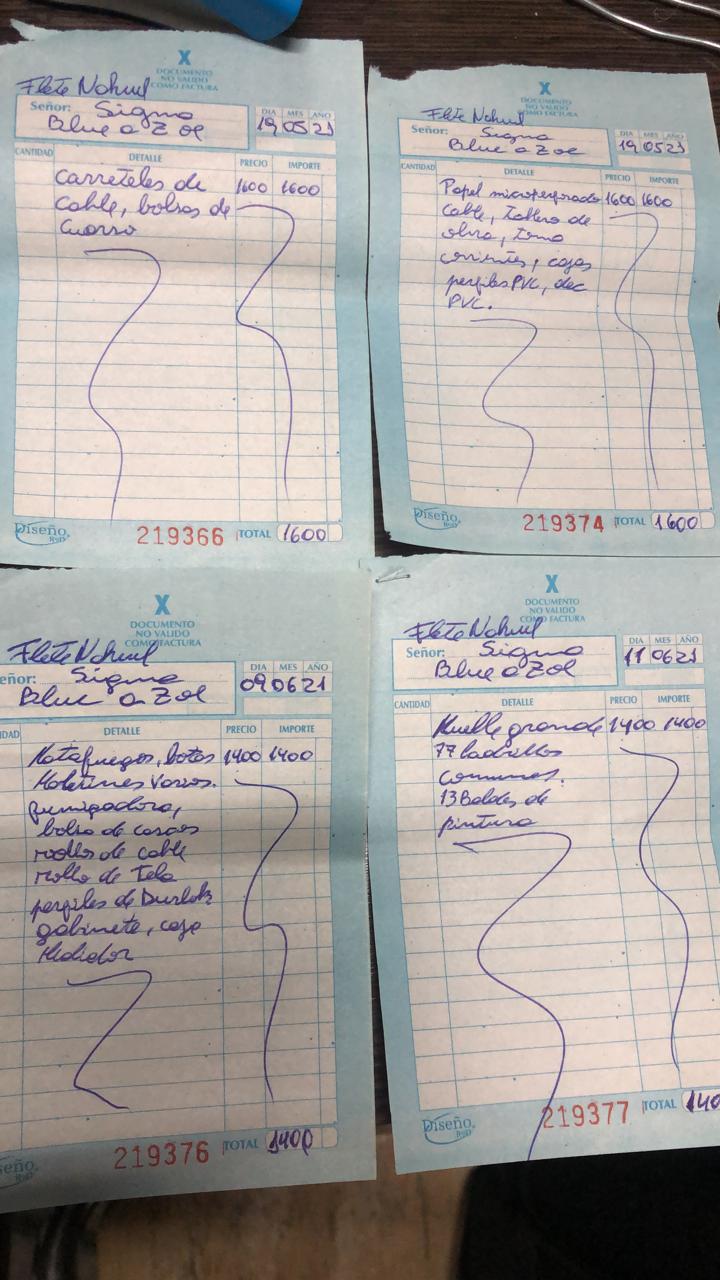 X
DOCUMENTO
NO VALIDO
COMO FACTURA
Flete Nahuel
Señor: Sigma
Blue a Zol
DIA MES AÑO
19 05 21
CANTIDAD DETALLE PRECIO IMPORTE
carreteles de 1600 1600
cable, bolsas de
Diseño
219366 TOTAL 1600
X
DOCUMENTO
NO VALIDO
COMO FACTURA
Flete Nahuel
Señor: Sigma
Blue a Zol
DIA MES AÑO
19 05 21
CANTIDAD DETALLE PRECIO IMPORTE
Papel microperforado 1600 1600
cable, tablero de
obra, toma
corrientes, cajas
perfiles PVC, dec
PVC.
Diseño
219374 TOTAL 1600
X
DOCUMENTO
NO VALIDO
COMO FACTURA
Flete Nahuel
eñor: Sigma
Blue a Zol
DIA MES AÑO
09 06 21
DAD DETALLE PRECIO IMPORTE
Matafuegos, botas 1400 1400
Materiales Varios.
fumigadora,
bolsa de cascos
rollos de cable
rollo de Tela
perfiles de Durlok
gabinete, caja
Medidor
seño
219376 TOTAL 1400
X
DOCUMENTO
NO VALIDO
COMO FACTURA
Flete Nahuel
Señor: Sigma
Blue a Zol
DIA MES AÑO
11 06 21
CANTIDAD DETALLE PRECIO IMPORTE
Mueble grande 1400 1400
77 ladrillos
comunes.
13 Baldes de
pintura
Diseño
219377 TOTAL 140